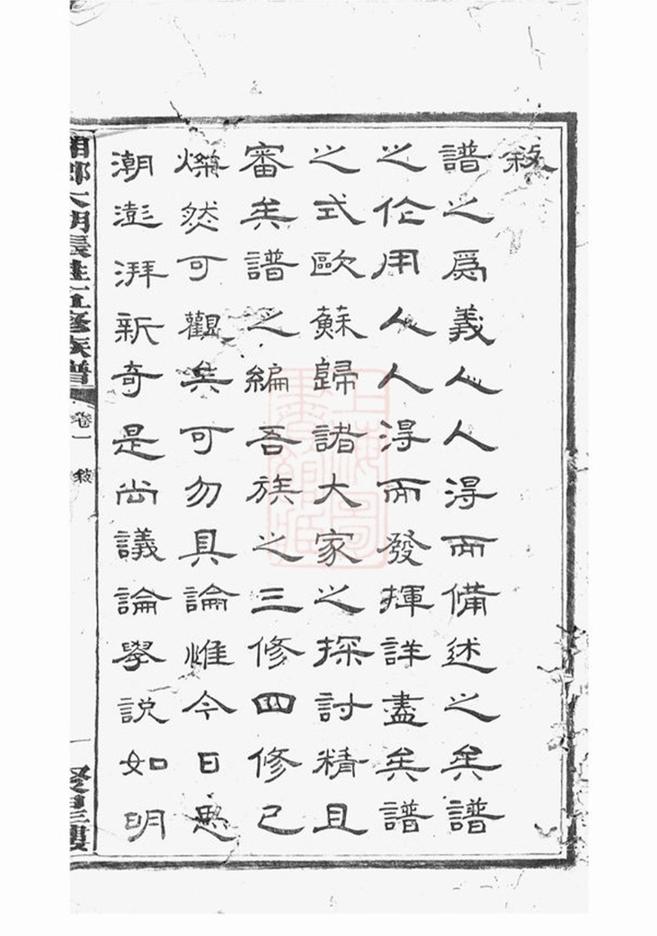 敘
譜之爲義人人得而備述之矣譜
之作用人人得而發揮詳盡矣譜
之式歐蘇歸諸大家之探討精且
審矣譜之編吾族之三修四修已
燦然可觀矣可勿具論惟今日思
潮澎湃新奇是尚議論學説如明
五修族譜
卷一
敘
一
上海圖書館藏